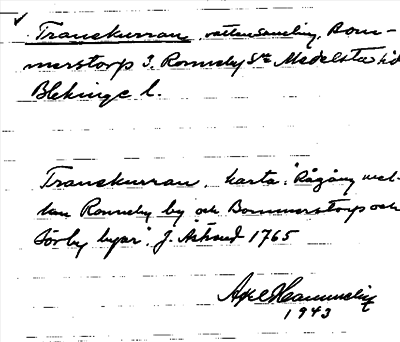 ✓ Transkurran, vattensamling, Bom-
merstorp 3. Ronneby Sn Medelsta hd
Blekinge l.
Transkurran, karta: "Rågång mel-
lan Ronneby by och Bommerstorp och
Sörby byar". J. Åstrand 1765
Axel Hammelig
1943